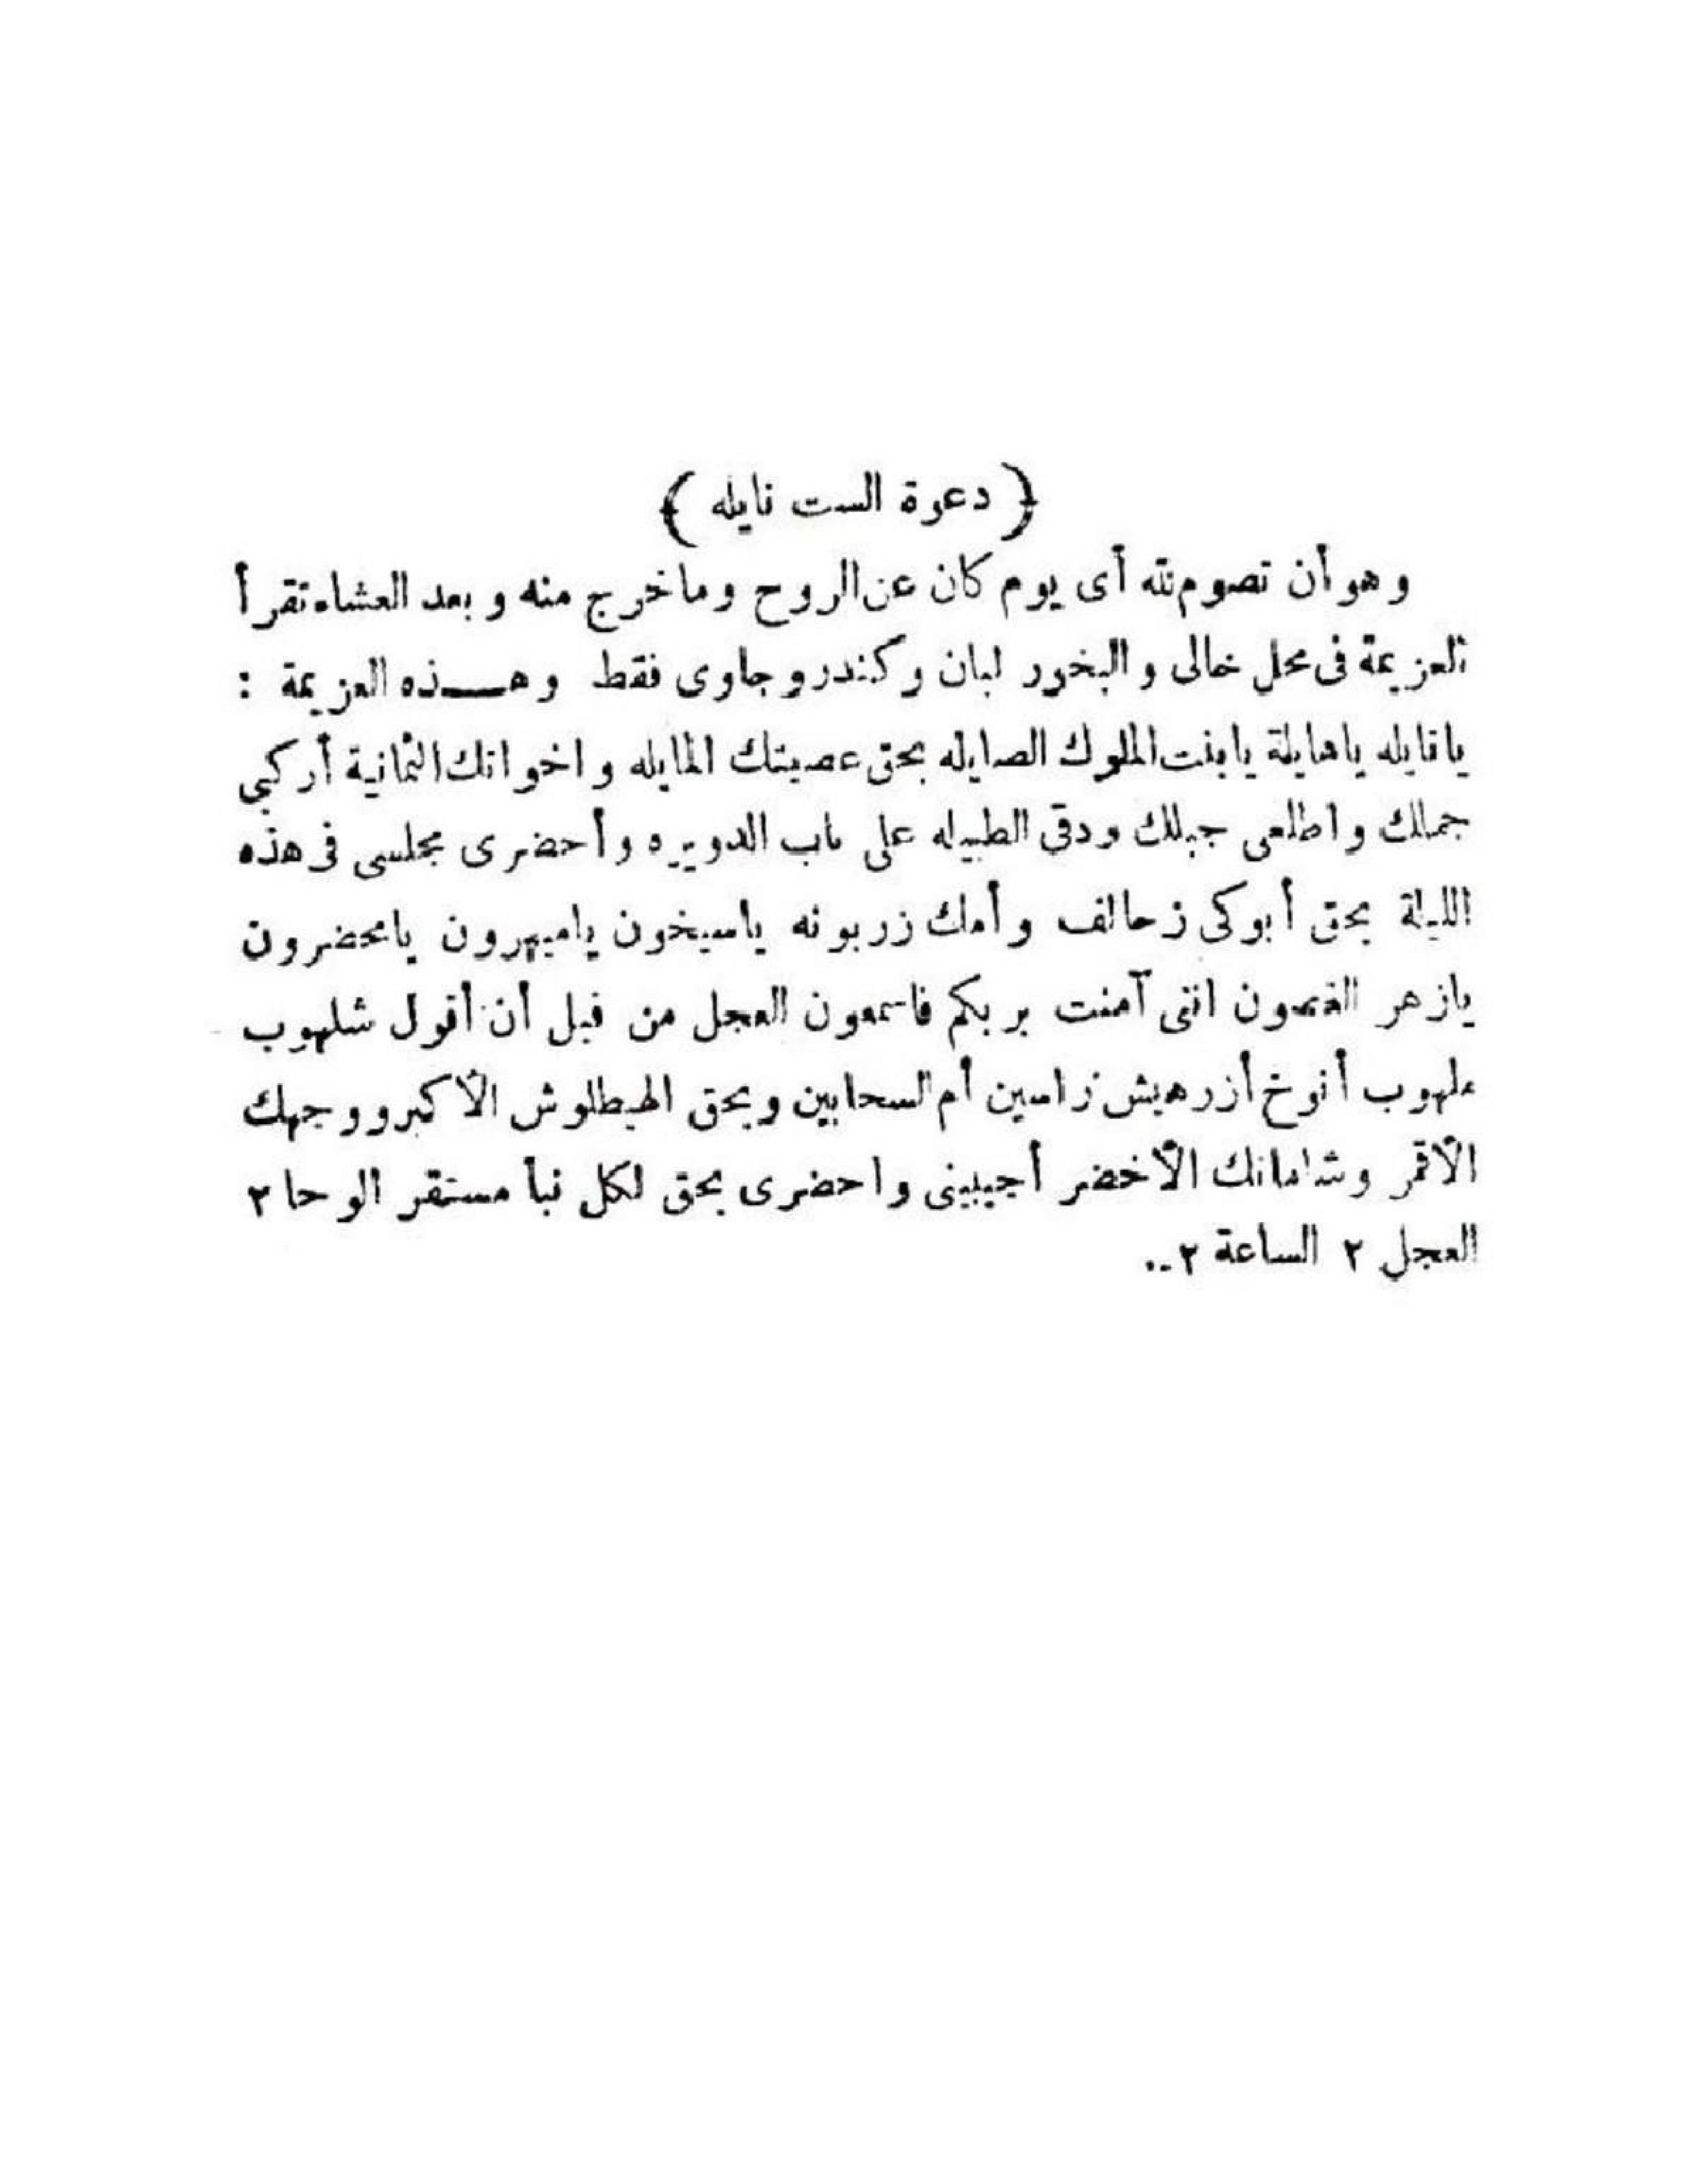 ﴿ دعوة الست نايله ﴾
وهو أن تصوم لله أى يوم كان عن الروح وما خرج منه وبعد العشاء تقرأ
العزيمة فى محل خالى والبخور لبان وكندر وجاوى فقط وهـــذه العزيمة :
يا نايله يا هايلة يا بنت الملوك الصايله بحق عصبتك المايله واخواتك الثمانية أركبى
جمالك واطلعى جبلك ودقى الطبيله على باب الدويره وأحضرى مجلسى فى هذه
الليلة بحق أبوكى زحالف وأمك زربونه ياسيخون ياميهرون يامحضرون
يازهر الغصون اننى آمنت بربكم فاسمعون العجل من قبل أن أقول شلهوب
ملهوب أنوخ أزرهيش زامين أم السحابين وبحق الهيطلوش الأكبر ووجهك
الأقمر وشاماتك الأخضر أجيبينى واحضرى بحق لكل نبأ مستقر الوحا ٢
العجل ٢ الساعة ٢..